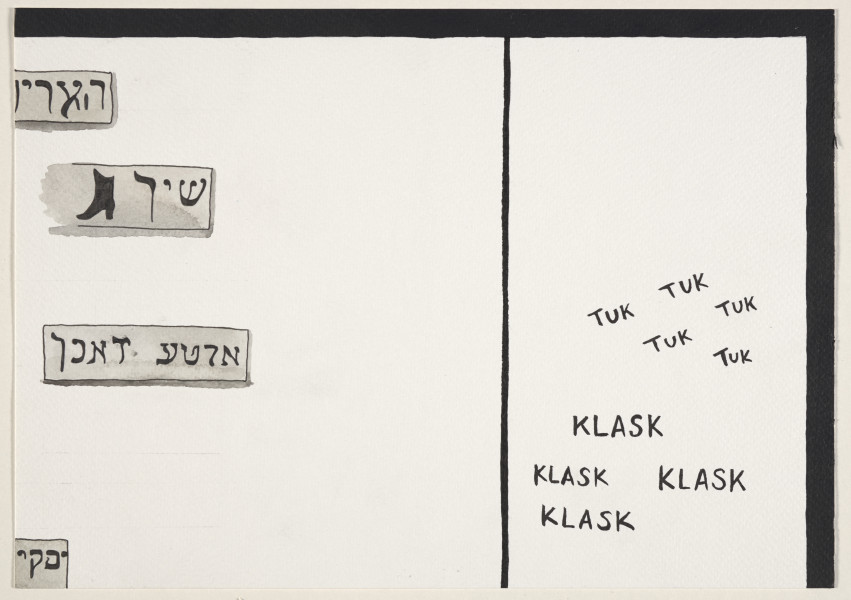 שיך
אלטע זאכן
TUK
TUK
TUK
TUK
TUK
KLASK
KLASK KLASK
KLASK